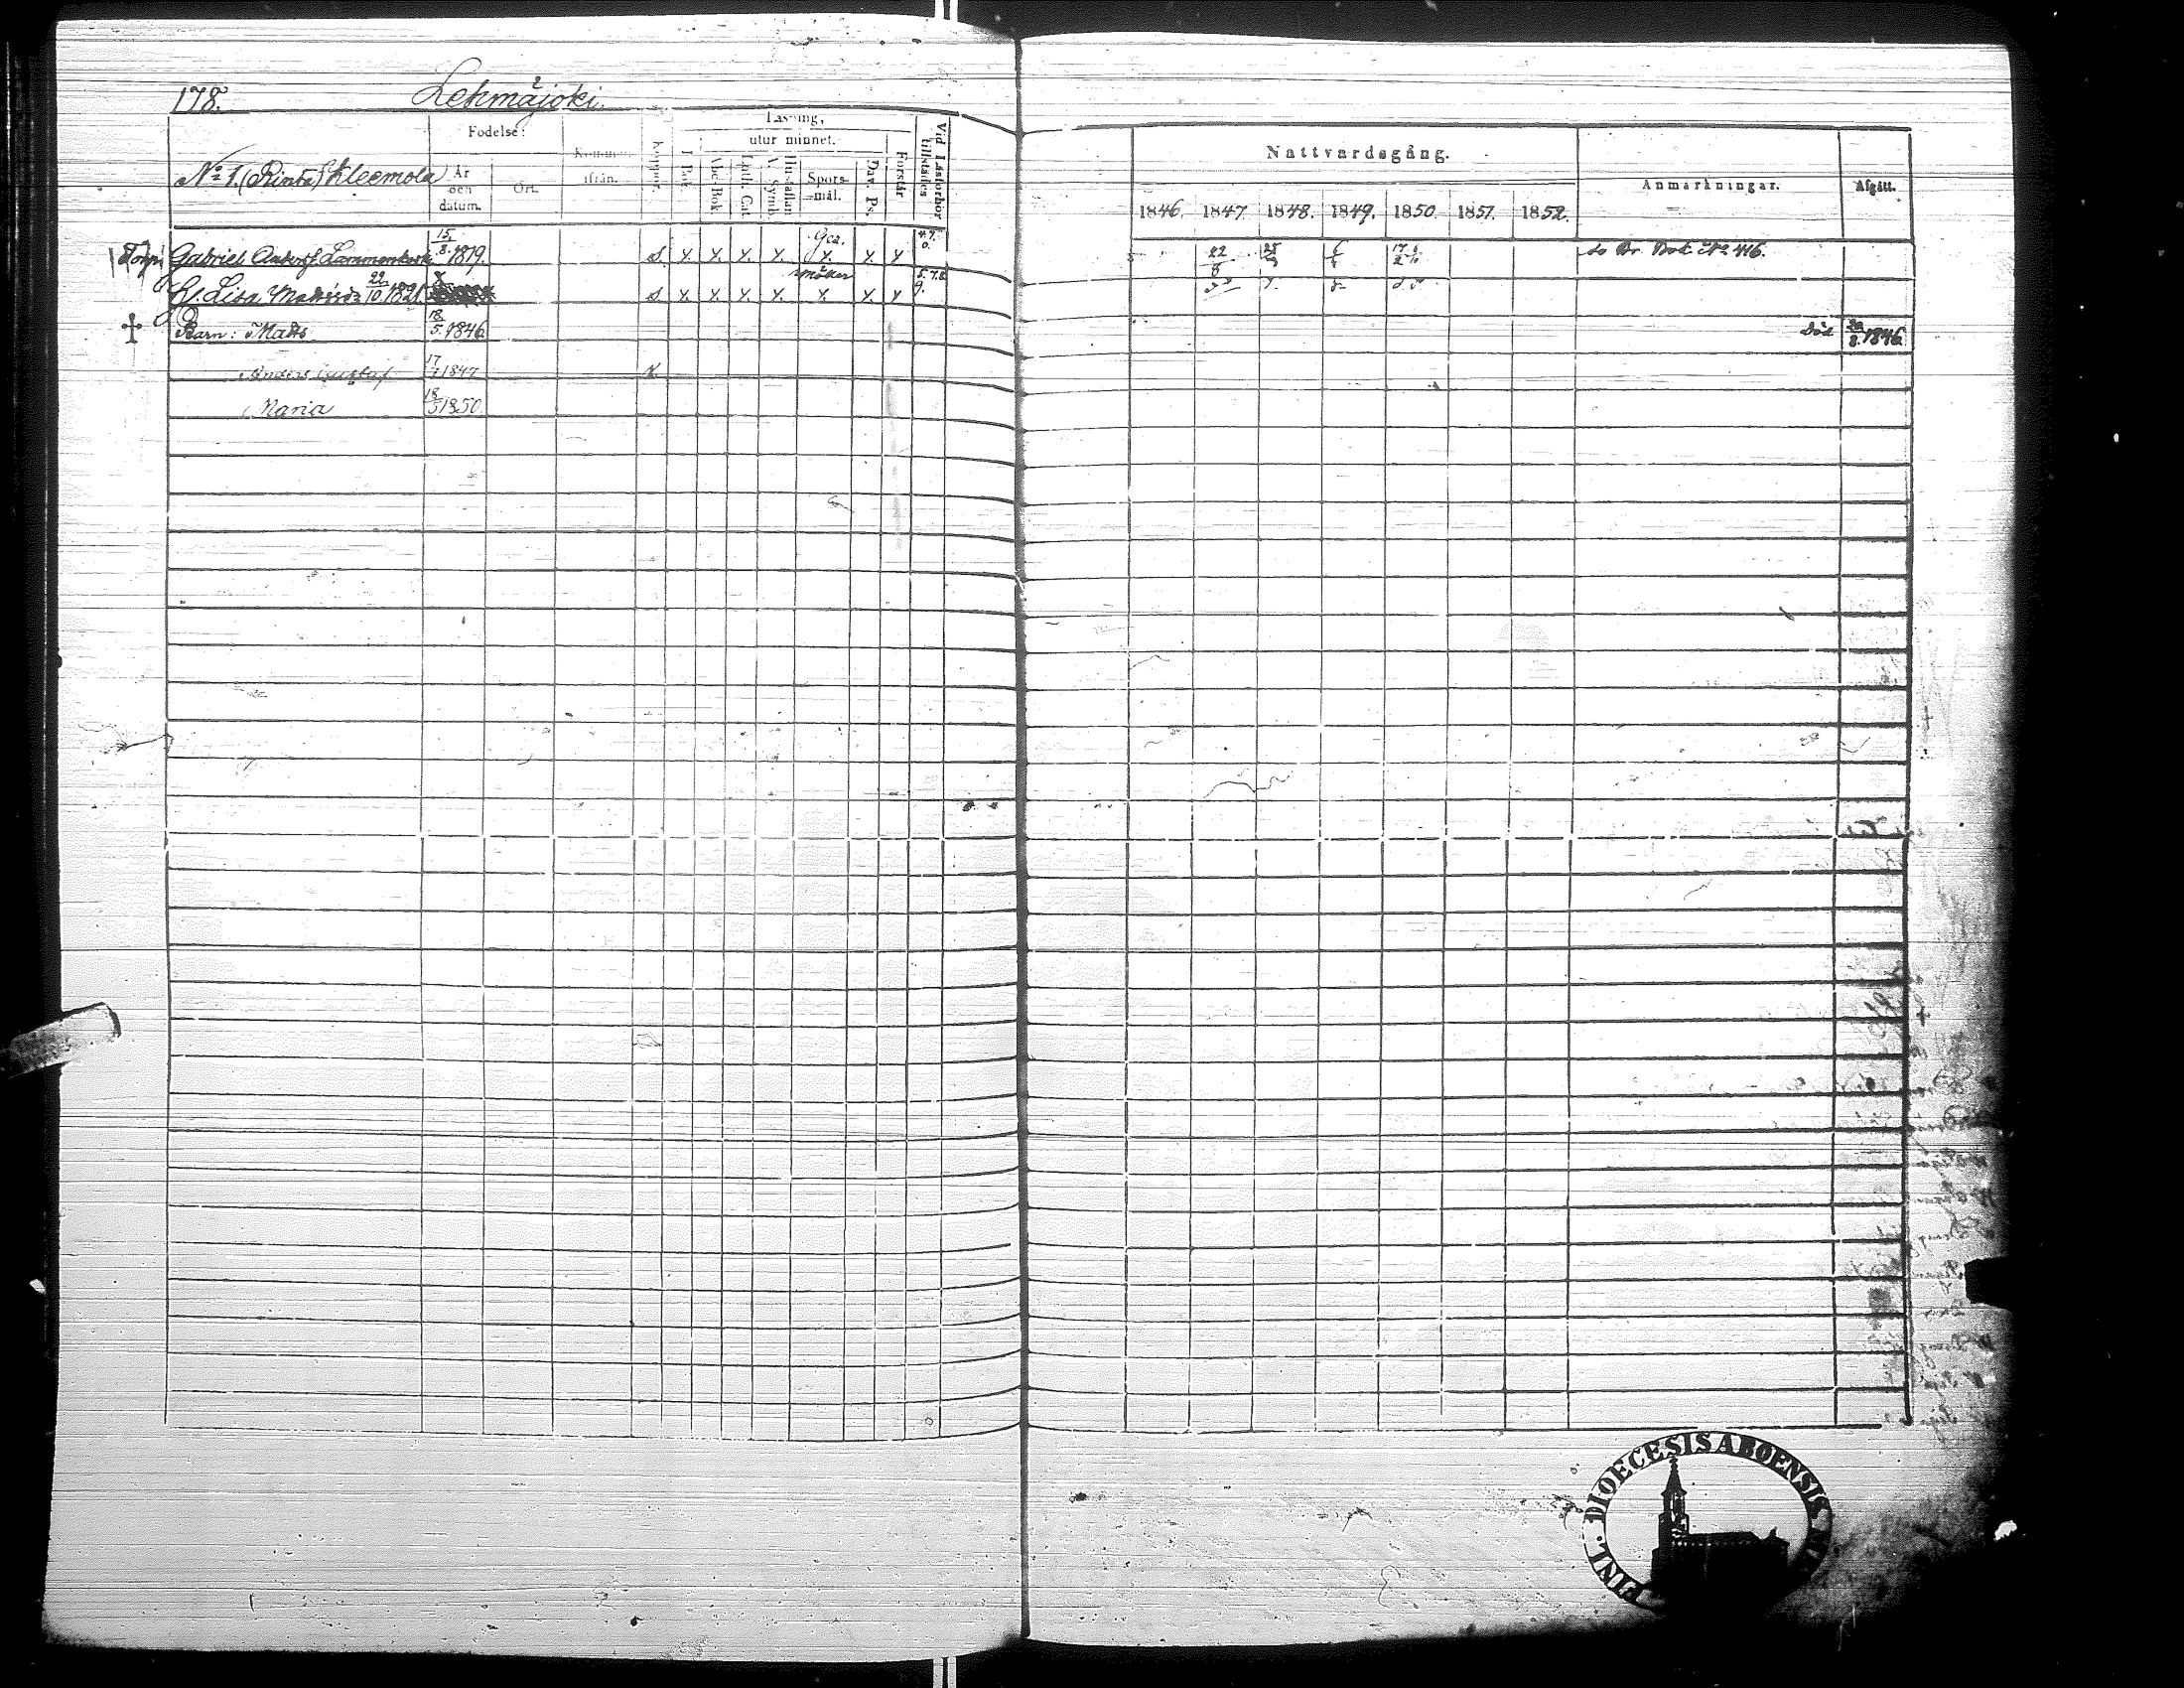 178. Lehmäjoki.
Läsning,
Födelse: Kommen utur minnet. Vid Läsförhör tillstädes
Nº 1. (Rinta) Kleemola År och datum. Ort. ifrån. Koppor. I Bok Abc Bok Luth. Cat. A. Symb. Hustaflan Spörs-mål. Dav. Ps. Förstår
Nattvardsgång. Anmärkningar. Afgått.
1846. 1847. 1848. 1849. 1850. 1851. 1852.
Torp. Gabriel Andersf. Lammenkoski 15/8. 1819. s. x. x. x. x. x. x. x 4.7. 0. 22/8 25/3 17/2 6/10 Br. Bok Nº 416.
H. Lisa Mattsd: 22/10 1821 s x. x. x. x. x. x. x 5.7.8. 9.
† Barn: Matts 18/5. 1846. Död 20/8. 1846.
Anders Gustaf 17/7 1847 x.
Maria 18/5 1850.
FINL. DIOECESIS ABOENSIS